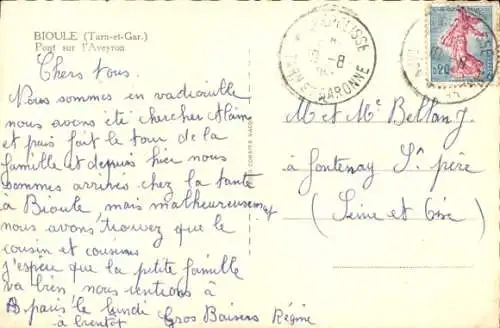 BIOULE (Tarn-et-Gar.)
Pont sur l'Aveyron
Chers tous.
Nous sommes en vadrouille
nous avons été chercher Alain
et puis fait le tour de la
famille et depuis hier nous
sommes arrivés chez la tante
à Bioule, mais malheureusement
nous avons trouvez que le
cousin et cousine
j'espère que la petite famille
va bien nous rentions à
Paris le lundi
à bientôt Gros Baisers Régine
COMBIER MACON
18-8
TARN-ET-GARONNE
0,20
M et Me Bellan J.
à Fontenay St père
(Seine et Oise)